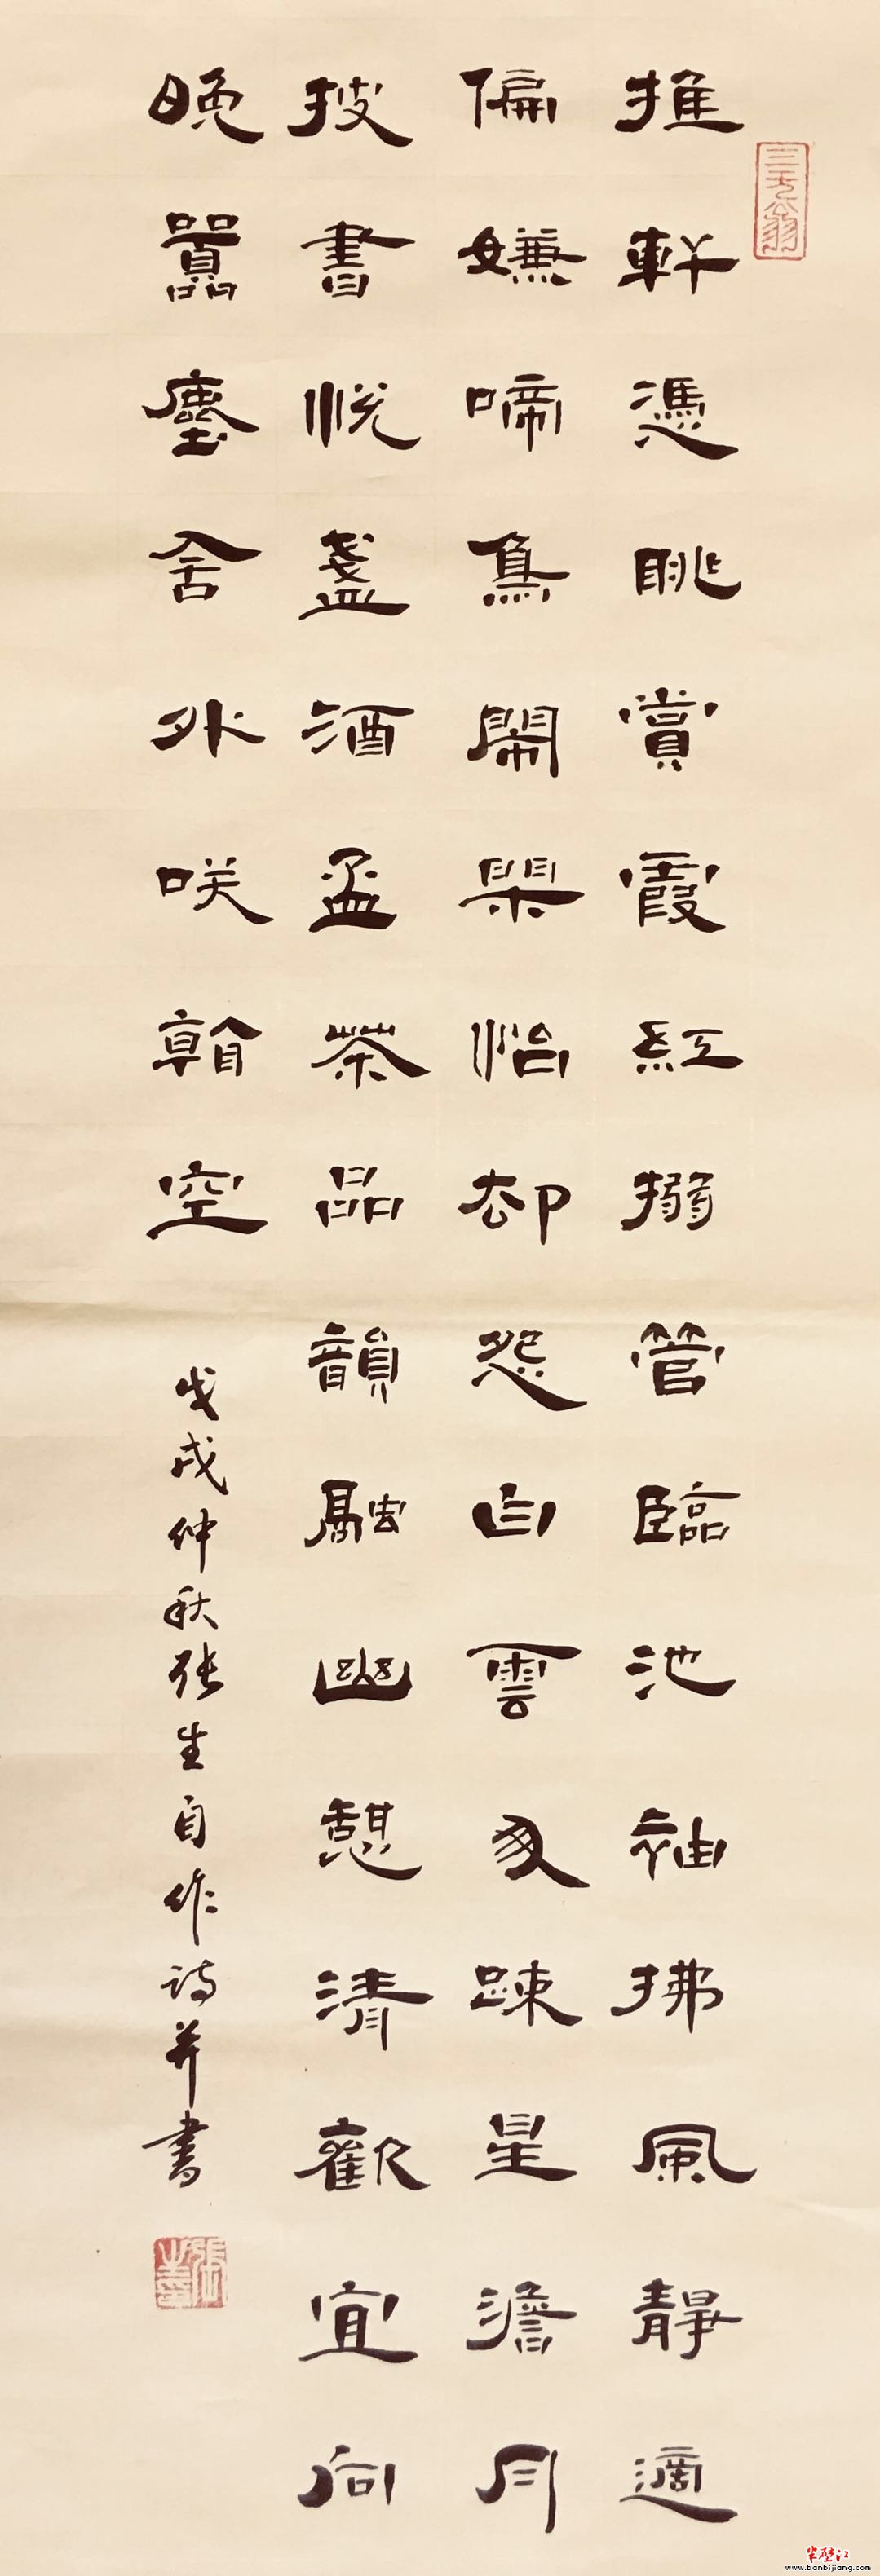 三无翁
推軒憑眺賞霞紅搦管臨池袖拂風靜適
偏嫌啼鳥鬧閑怡却怨白雲匆疎星澹月
披書悅盞酒盂茶品韻融幽憩清歡宜向
晚囂塵舍外咲朝空
戊戌仲秋張生自作詩并書
半壁江
www.banbijiang.com